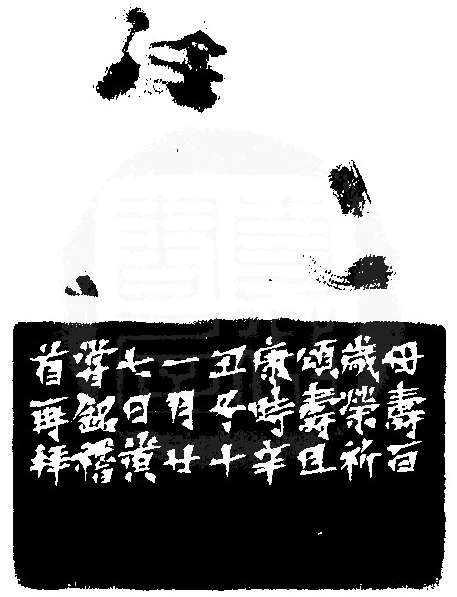 母壽百
歲榮祈
頌壽且
康時辛
丑子十
一月廿
七日黃
嘗銘稽
首再拜